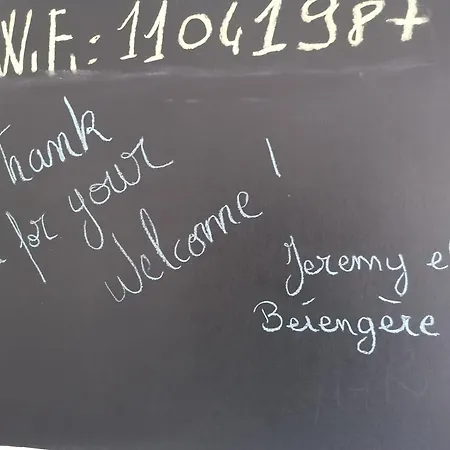 W.F.: 11041987
Thank
for your
Welcome!
Jeremy et
Bérengère